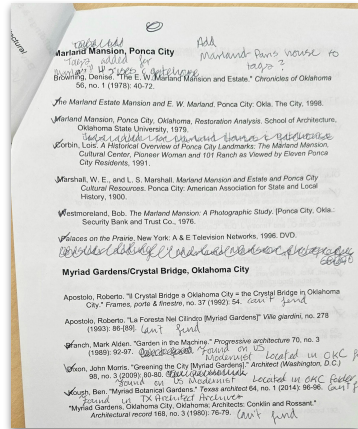 Add
Marland Mansion, Ponca City
Marland Paris house to
tags?
Tags added for
Browning, Denise. "The E. W. Marland Mansion and Estate." Chronicles of Oklahoma
56, no. 1 (1978): 40-72.
The Marland Estate Mansion and E. W. Marland. Ponca City: Okla. The City, 1998.
Marland Mansion, Ponca City, Oklahoma, Restoration Analysis. School of Architecture,
Oklahoma State University, 1979.
Corbin, Lois. A Historical Overview of Ponca City Landmarks: The Marland Mansion,
Cultural Center, Pioneer Woman and 101 Ranch as Viewed by Eleven Ponca
City Residents, 1991.
Marshall, W. E., and L. S. Marshall. Marland Mansion and Estate and Ponca City
Cultural Resources. Ponca City: American Association for State and Local
History, 1900.
Westmoreland, Bob. The Marland Mansion: A Photographic Study. [Ponca City, Okla.:
Security Bank and Trust Co., 1976.
Palaces on the Prairie. New York: A & E Television Networks, 1996. DVD.
Myriad Gardens/Crystal Bridge, Oklahoma City
Apostolo, Roberto. "Il Crystal Bridge a Oklahoma City = the Crystal Bridge in Oklahoma
City." Frames, porte & finestre, no. 37 (1992): 54. can't find
Apostolo, Roberto. "La Foresta Nel Cilindro [Myriad Gardens]" Ville giardini, no. 278
(1993): 86-[89]. can't find
Branch, Mark Alden. "Garden in the Machine." Progressive architecture 70, no. 3
(1989): 92-97. found on US
Modernist Located in OKC Folder
Dixon, John Morris. "Greening the City [Myriad Gardens]." Architect (Washington, D.C.)
98, no. 3 (2009): 80-80.
found on US Modernist Located in OKC Folder
Koush, Ben. "Myriad Botanical Gardens." Texas architect 64, no. 1 (2014): 96-96. can't find
found in TX Architect Archives
"Myriad Gardens, Oklahoma City, Oklahoma; Architects: Conklin and Rossant."
Architectural record 168, no. 3 (1980): 76-79. can't find